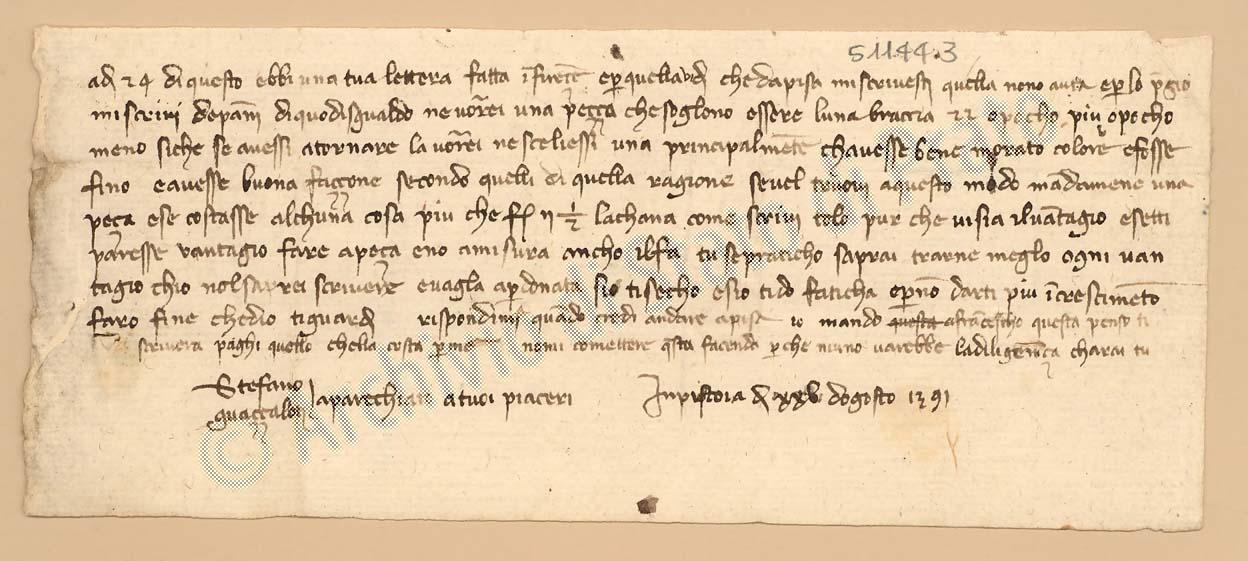 51144.3
adi 24 di questo ebbi una tua lettera fatta in firenze e per quella vidi che da pisa mi scrivesti quella nono auta e per lo pregio
mi scrivi de panni di quodisgualdo ne vorei una pezza che soglono essere luna braccia 22 o pocho piu o pocho
meno siche se avessi a tornare la vorei ne scieliessi una principalmente ch avesse bene morato colore e fosse
fino e avesse buona fazzone secondo quelli di quella ragione se vel truovi a questo modo mandamene una
peça e se costasse alchuna cosa piu che f 11 1/2 la channa come scrivi tolo pur che vi sia il vantagio e se tti
paresse vantagio fare a peça e no a misura ancho il fa tu se praticho saprai trarne meglo ogni van
tagio ch io nol saprei scrivere e vagla a perdonata s io ti secho e s io ti do faticha e per non darti piu increscimento
faro fine che dio ti guardi rispondimi quando credi andare a pisa io mando questa a francescho questa penso ti
scrivera paghi quello che lla costa per me nomi comettere questa facenda perche niuno varebbe la diligenza ch arai tu
Stefano
guazzalotri aparechiato a tuoi piaceri In pistoia di xxv d ogosto 1391
© Archivio di Stato di Prato